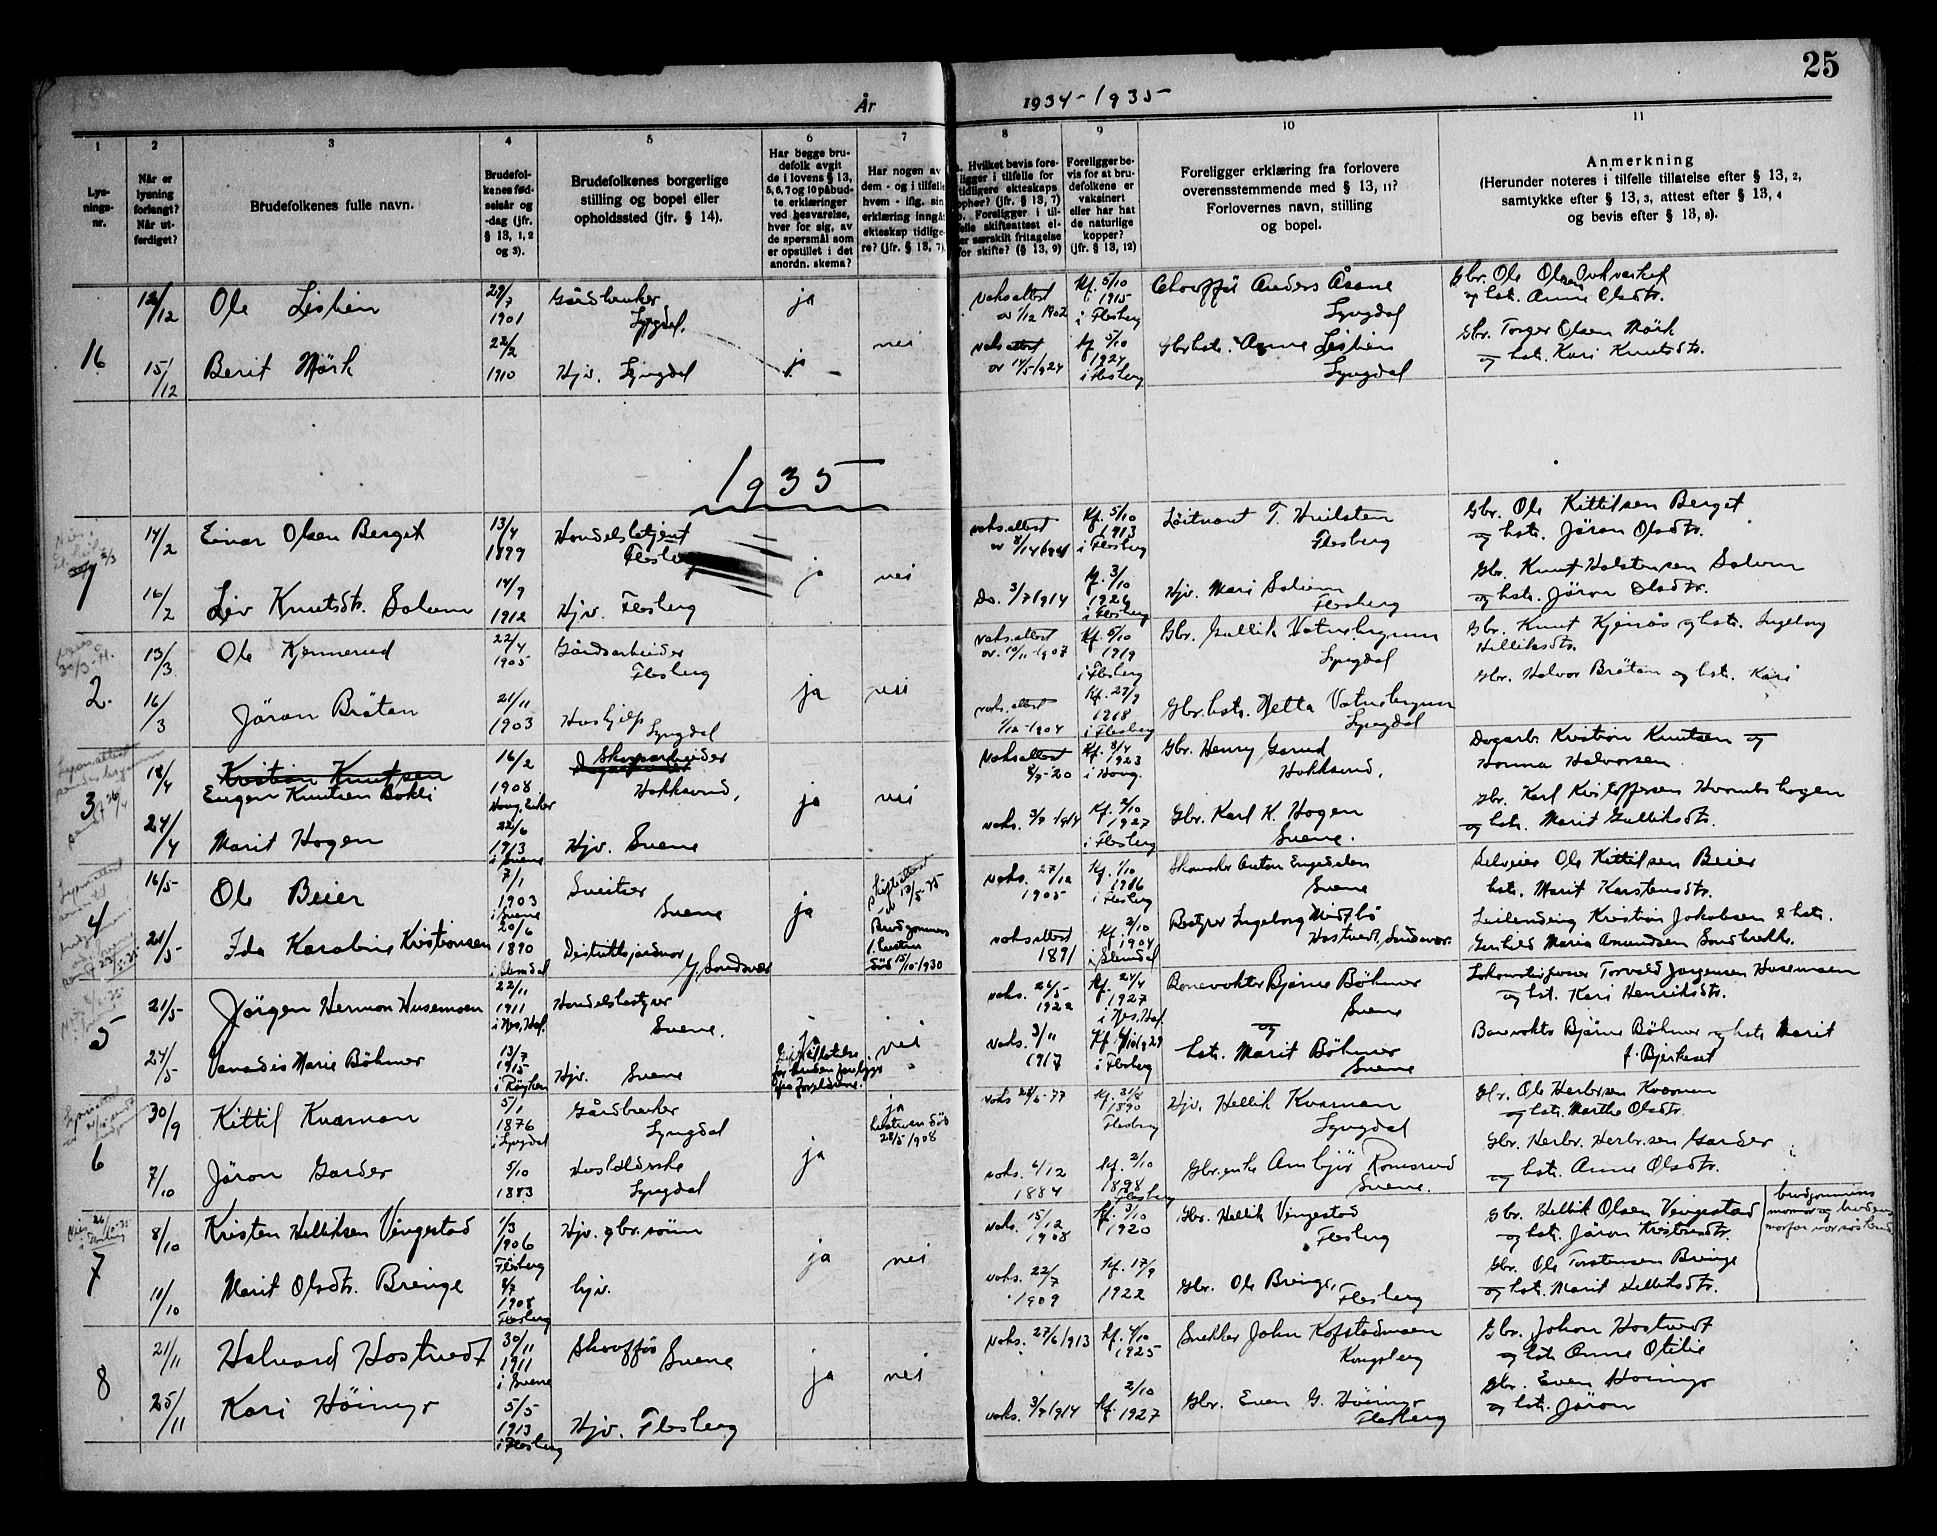 25
År 1934-1935
1
Lys-
nings-
nr.
2
Når er
lysning
forlangt?
Når ut-
ferdiget?
3
Brudefolkenes fulle navn.
4
Brudefol-
kenes fød-
selsår og
-dag (jfr.
§ 13, 1, 2
og 3).
5
Brudefolkenes borgerlige
stilling og bopel eller
opholdssted (jfr. § 14).
6
Har begge bru-
defolk avgit
de i lovens § 13,
5, 6, 7 og 10 påbud-
te erklæringer
ved besvarelse,
hver for sig, av
de spørsmål som
er opstillet i det
anordn. skema?
7
Har nogen av
dem - og i tilfelle
hvem - iflg. sin
erklæring inngått
ekteskap tidlige-
re? (jfr. § 13, 7).
8
Hvilket bevis fore-
ligger i tilfelle for
tidligere ekteskaps
ophør? (jfr. § 13, 7)
b. Foreligger i til-
felle skifteattest el-
ler særskilt fritagelse
for skifte? (§ 13, 9)
9
Foreligger be-
vis for at bru-
defolkene er
vaksinert
eller har hat
de naturlige
kopper?
(jfr. § 13, 12)
10
Foreligger erklæring fra forlovere
overensstemmende med § 13, 11?
Forlovernes navn, stilling
og bopel.
11
Anmerkning
(Herunder noteres i tilfelle tillatelse efter § 13, 2,
samtykke efter § 13, 3, attest efter § 13, 4
og bevis efter § 13, 8).
16
12/12 Ole Lislien 29/7 1901 Gårdbruker Lyngdal. ja
vaks.attest av 1/12 1902 Kf. 5/10 1915 i Flesberg Chauffør Anders Åsene Lyngdal
og hst. Anne Olsdtr.
15/12 Berit Mörk 22/2 1910 Hjv. Lyngdal ja nei
Kf. 5/10 1924 i Flesberg Gbrhst. Anne Lislien Lyngdal
Gbr. Torger Olsen Mörk
og hst. Kari Knutsdtr.
1935
1
14/2 Einar Olsen Berget 13/4 1899 Handelsbetjent Flesberg
vaks.attest Kf. 5/10 1913 i Flesberg Löitnant T. Flesberg
Gbr. Ole Kittilsen Berget
og hst. Jöran Olsdtr.
16/2 Liv Knutsdtr. 14/9 1912 Hjv. Flesberg ja nei
Do. 3/7 1914 Kf. 3/10 1926 i Flesberg Hjv. Mari Flesberg
Gbr. Knut Halstensen
og hst. Jöran Olsdtr.
2.
13/3 Ole Kjennerud 22/4 1905 Gårdsarbeider Flesberg
vaks.attest av 10/11-1907 Kf. 5/10 1919 i Flesberg Gbr. Gullik Lyngdal
Gbr. Knut og hst. Ingeborg
Helliksdtr.
16/3 Jöran Bråten 21/11 1903 Hushjelp Lyngdal ja nei
vaks.attest 1/12-1904 Kf. 29/9 1918 i Flesberg Gbr.hst. Netta Lyngdal
Gbr. Halvor Bråten og hst. Kari
3
18/4 Kristian Knutsen
Eugen Knutsen Bakli 16/2 1908 Haug, Eiker Skogsarbeider Hokksund,
vaksattest Kf. 8/4 1923 i Haug. Gbr. Henry Garud Hokksund.
Dagarb. Kristian Knutsen og
Hanna Halvorsen
24/4 Marit Hogen 22/6 1913 i Svene Hjv. Svene ja nei
vaks. 3/7 1914 Kf. 2/10 1927 i Flesberg Gbr. Karl K. Hogen Svene.
Gbr. Karl Kristoffersen
og hst. Marit Gulliksdtr.
4
16/5 Ole Beier 7/1 1903 i Svene Sveitser Svene ja
vaks. 27/12 1905 Kf. 1/10 1916 i Flesberg Skomaker Anton Engedalen Svene
Selveier Ole Kittilsen Beier
hst. Marit Karstensdtr.
21/5 Ida Karoline Kristiansen 20/6 1890 Distriktsjordmor
Brudgommens hustru död 15/10-1930
vaksattest 1891 Kf. 2/10 1904 Bestyrer Ingeborg
Kristian Jakobsen & hst.
Gunhild Maria Amundsen
5
21/5 Jörgen Herman Husemoen 22/11 1911 Handelsbestyrer Svene.
vaks. 26/5 1922 Kf. 24/4 1927 Banevokter Bjarne Böhmer Svene
Torvald Jørgensen Husemoen
og hst. Kari Henriksdtr.
24/5 Vanadis Marie Böhmer 13/7 1915 i Röyken Hjv. Svene ja nei
vaks. 3/11 1917 i Flesberg og
hst. Marit Böhmer Svene
Banevokter Bjarne Böhmer og hst. Marit
6
30/9 Kittil Kvarman 5/1 1876 i Lyngdal Gårdbruker Lyngdal
ja hustruen död 28/5 1908
Kf. 1890 Flesberg Hjv. Hellik Kvarman Lyngdal
Gbr. Ole Kvarman
og hst. Marthe Olsdtr.
7/10 Jöran Garder 5/10 1883 Husholderske Lyngdal ja
vaks. 6/12 1884 Kf. 2/10 1898 Flesberg Gbr.enke Svene.
Gbr. Herbr. Herbr.sen Garder
og hst. Anne Olsdtr.
7
8/10 Kristen Helliksen Vingestad 1/3 1906 Flesberg Hjv. gbr.sönn
vaks. 15/12 1908 Kf. 3/10 1920 Gbr. Hellik Vingestad Flesberg
Gbr. Hellik Olsen Vingestad
og hst. Jöran Kristensdtr.
brudgommens
mormor og brudens
morfar var söskend
11/10 Marit Olsdtr. Brenge 8/7 1908 Flesberg hjv. ja nei
vaks. 22/7 1909 Kf. 17/9 1922 Gbr. Ole Brenge, Flesberg
Gbr. Ole Torstensen Brenge
og hst. Marit Helliksdtr.
8
21/11 Halvard Hostvedt 30/11 1911 i Svene Skofför Svene
vaks. 27/6 1913 Kf. 4/10 1925 Snekker John Kofstadmoen Kongsberg
Gbr. Johan Hostvedt
og hst. Anne Otilie
25/11 Kari Höimyr 5/5 1913 i Flesberg Hjv. Flesberg ja nei
vaks. 3/7 1914 Kf. 2/10 1927 Gbr. Even G. Höimyr Flesberg
Gbr. Even Höimyr
og hst. Jöran